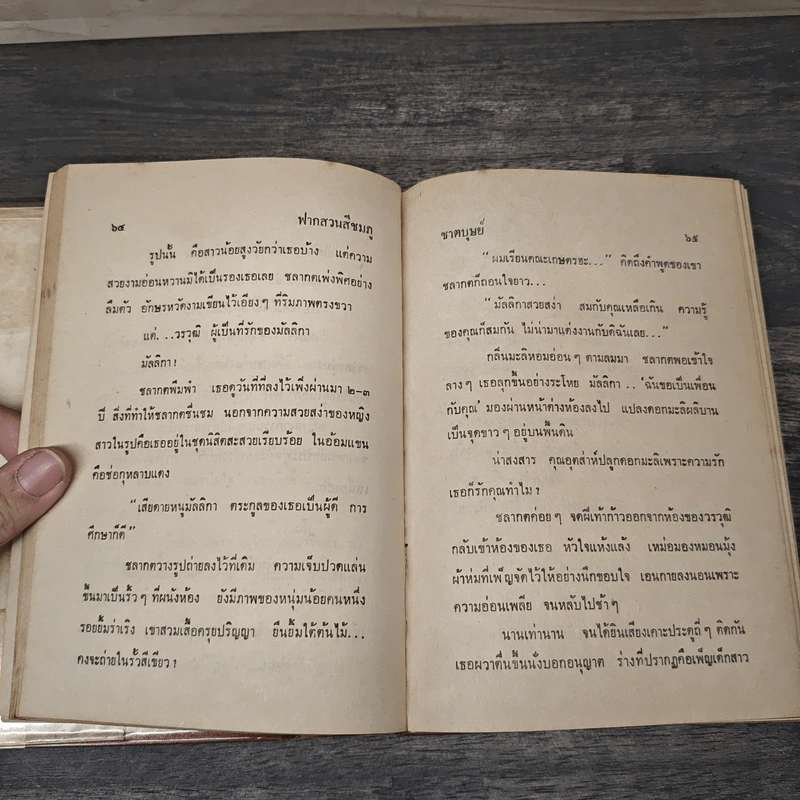 ๖๔ ฟากสวนสีชมภู
รูปนั้น คือสาวน้อยสูงวัยกว่าเธอบ้าง แต่ความ
สวยงามอ่อนหวานมิได้เป็นรองเธอเลย ชลากตเพ่งพิศอย่าง
ลืมตัว อักษรหวัดงามเขียนไว้เอียงๆ ที่ริมภาพตรงขวา
แด่...วรวุฒิ ผู้เป็นที่รักของมัลลิกา
มัลลิกา !
ชลากตพึมพำ เธอดูวันที่ที่ลงไว้เพิ่งผ่านมา ๒-๓
ปี สิ่งที่ทำให้ชลากตชื่นชม นอกจากความสวยสง่าของหญิง
สาวในรูปคือเธออยู่ในชุดนิสิตสะสวยเรียบร้อย ในอ้อมแขน
คือช่อกุหลาบแดง
“เสียดายหนูมัลลิกา ตระกูลของเธอเป็นผู้ดี การ
ศึกษาก็ดี”
ชลากตวางรูปถ่ายลงไว้ที่เดิม ความเจ็บปวดแล่น
ขึ้นมาเป็นริ้วๆ ที่ผนังห้อง ยังมีภาพของหนุ่มน้อยคนหนึ่ง
รอยยิ้มร่าเริง เขาสวมเสื้อครุยปริญญา ยืนยิ้มใต้ต้นไม้...
คงจะถ่ายในรั้วสีเขียว ?
ชาตบุษย์ ๖๕
“ผมเรียนคณะเกษตรฮะ...” คิดถึงคำพูดของเขา
ชลากตก็ถอนใจยาว...
“มัลลิกาสวยสง่า สมกับคุณเหลือเกิน ความรู้
ของคุณก็สมกัน ไม่น่ามาแต่งงานกับดิฉันเลย...”
กลิ่นมะลิหอมอ่อนๆ ตามลมมา ชลากตพอเข้าใจ
ลางๆ เธอลุกขึ้นอย่างระโหย มัลลิกา .. ‘ฉันขอเป็นเพื่อน
กับคุณ’ มองผ่านหน้าต่างห้องลงไป แปลงดอกมะลิผลิบาน
เป็นจุดขาวๆ อยู่บนพื้นดิน
น่าสงสาร คุณอุตส่าห์ปลูกดอกมะลิเพราะความรัก
เธอก็รักคุณทำไม ?
ชลากตค่อยๆ จดฝีเท้าก้าวออกจากห้องของวรวุฒิ
กลับเข้าห้องของเธอ หัวใจแห้งแล้ง เหม่อมองหมอนมุ้ง
ผ้าห่มที่เพ็ญจัดไว้ให้อย่างนึกขอบใจ เอนกายลงนอนเพราะ
ความอ่อนเพลีย จนหลับไปช้าๆ
นานเท่านาน จนได้ยินเสียงเคาะประตูถี่ๆ ติดกัน
เธอผวาตื่นขึ้นนั่งบอกอนุญาต ร่างที่ปรากฏคือเพ็ญเด็กสาว